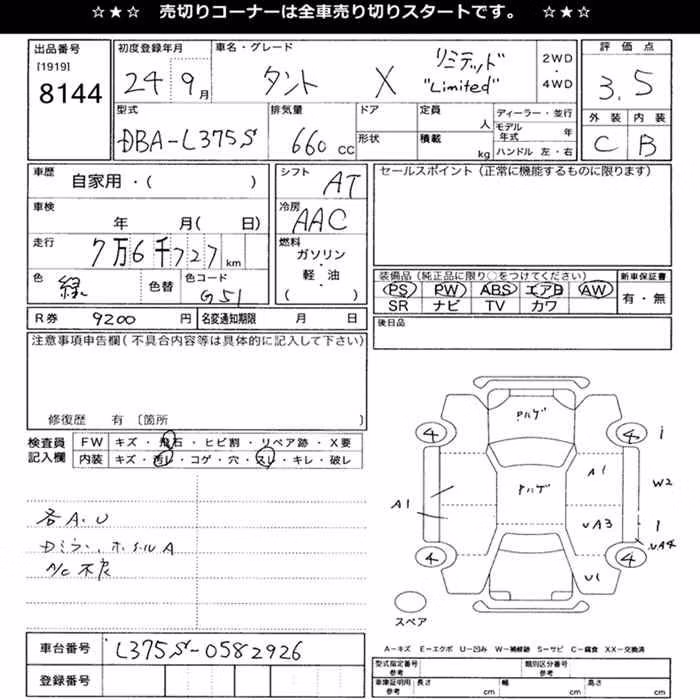 ☆★☆ 売切りコーナーは全車売り切りスタートです。 ☆★☆
出品番号
[1919]
8144
初度登録年月
24 9月
車名・グレード
タント X リミテッド
"Limited"
2WD
・
4WD
評価点
3.5
外装 内装
C B
型式
DBA-L375S
排気量
660 cc
ドア
形状
定員
人
積載
kg
ディーラー・並行
モデル年式 年
ハンドル 左・右
車歴
自家用・( )
車検
年 月( 日)
走行
7万6千727km
色
緑
色替
色コード
G51
シフト
AT
冷房
AAC
燃料
ガソリン
・
軽・油
( )
セールスポイント(正常に機能するものに限ります)
装備品(純正品に限り○をつけてください)
PS PW ABS エアB AW
SR ナビ TV カワ
新車保証書
有・無
R券 9200 円
名変通知期限 月 日
後日品
注意事項申告欄(不具合内容等は具体的に記入して下さい)
修復歴 有 〔箇所 〕
検査員
記入欄
FW キズ・飛石・ヒビ割・リペア跡・X要
内装 キズ・汚レ・コゲ・穴・スレ・キレ・破レ
各A.U
Dミラー、ホイルA
A/C不良
Pハゲ
4 4 1
A1
W2
Pハゲ
A1
UA3 1
UA4
4 4
U1
スペア
車台番号 L375S-0582926
登録番号
A-キズ E-エクボ U-凹み W-補修跡 S-サビ C-腐食 XX-交換済
型式指定番号
参考
類別区分番号
参考
車庫証明用
参考
長さ cm 幅 cm 高さ cm